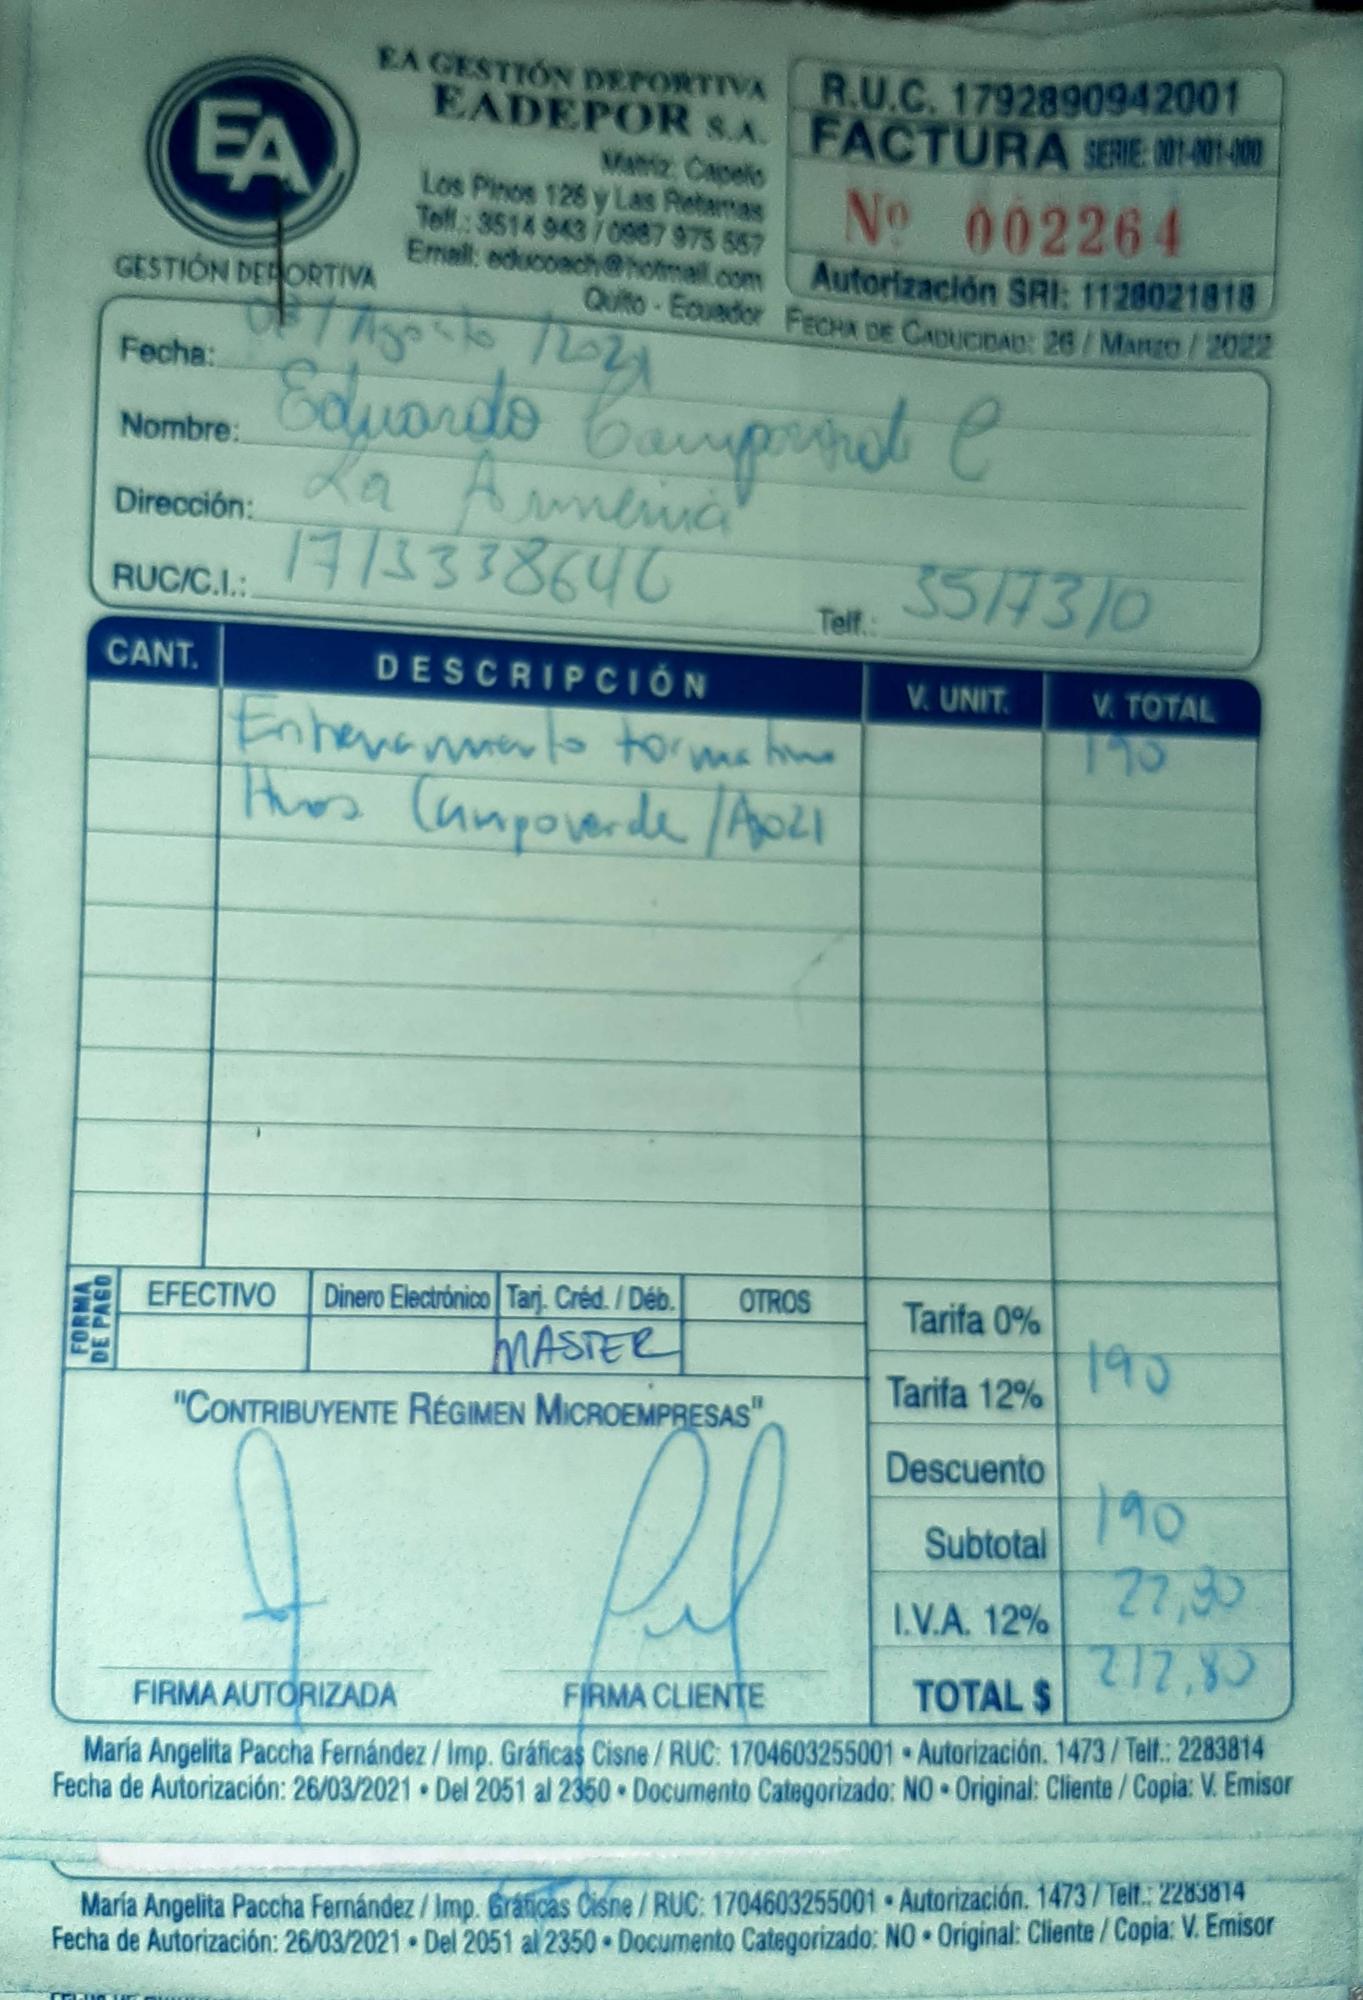 EA
GESTIÓN DEPORTIVA
EA GESTIÓN DEPORTIVA
EADEPOR S.A.
Matriz: Capelo
Los Pinos 126 y Las Retamas
Telf.: 3514 943 / 0987 975 557
Email: educoach@hotmail.com
Quito - Ecuador
R.U.C. 1792890942001
FACTURA SERIE: 001-001-000
Nº 002264
Autorización SRI: 1128021818
FECHA DE CADUCIDAD: 26 / MARZO / 2022
Fecha: 03 / Agosto / 2021
Nombre: Eduardo C
Dirección: La Armenia
RUC/C.I.: 1713338646 Telf.: 3517310
CANT. DESCRIPCIÓN V. UNIT. V. TOTAL
Entrenamiento formativo 190
Hnos Campoverde / Ago21
FORMA DE PAGO
EFECTIVO Dinero Electrónico Tarj. Créd. / Déb. OTROS
MASTER
"CONTRIBUYENTE RÉGIMEN MICROEMPRESAS"
Tarifa 0%
Tarifa 12% 190
Descuento
Subtotal 190
I.V.A. 12% 22,80
TOTAL $ 212,80
FIRMA AUTORIZADA FIRMA CLIENTE
María Angelita Paccha Fernández / Imp. Gráficas Cisne / RUC: 1704603255001 • Autorización. 1473 / Telf.: 2283814
Fecha de Autorización: 26/03/2021 • Del 2051 al 2350 • Documento Categorizado: NO • Original: Cliente / Copia: V. Emisor
María Angelita Paccha Fernández / Imp. Gráficas Cisne / RUC: 1704603255001 • Autorización. 1473 / Telf.: 2283814
Fecha de Autorización: 26/03/2021 • Del 2051 al 2350 • Documento Categorizado: NO • Original: Cliente / Copia: V. Emisor